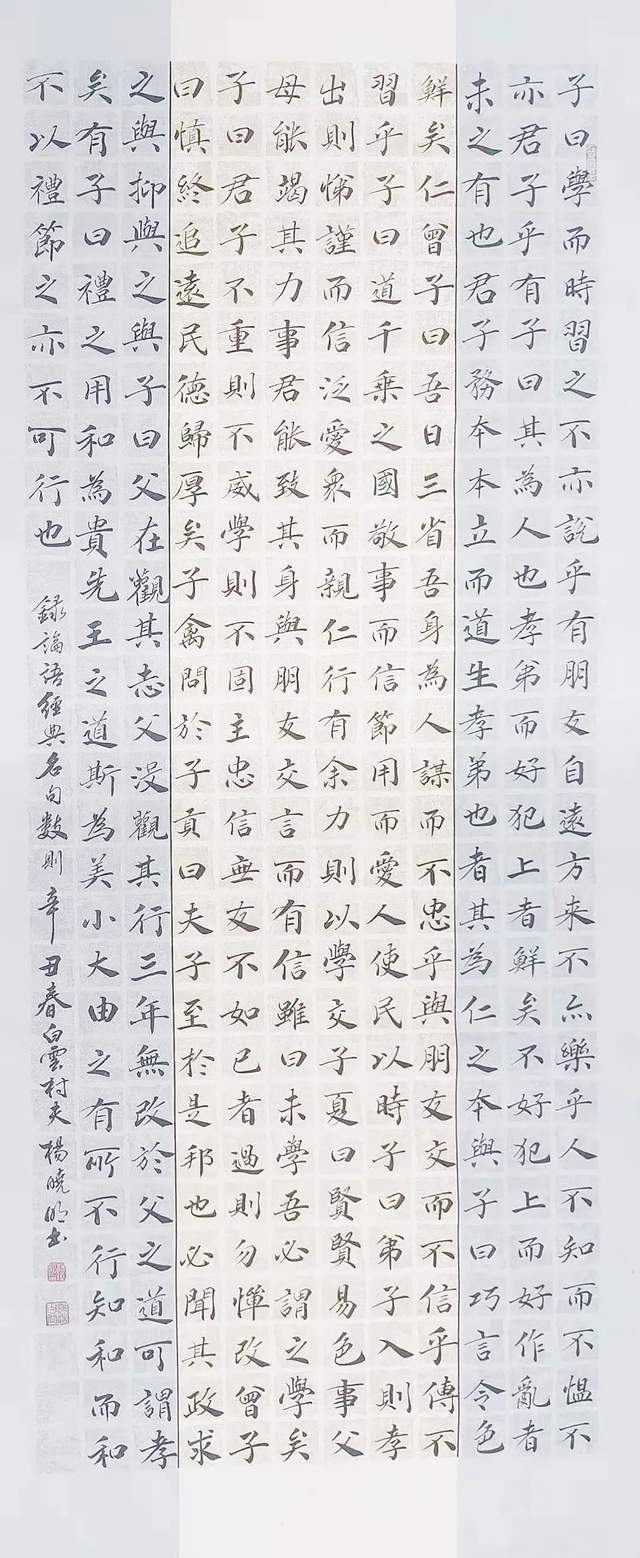 子曰學而時習之不亦說乎有朋友自遠方來不亦樂乎人不知而不愠不
亦君子乎有子曰其為人也孝弟而好犯上者鮮矣不好犯上而好作亂者
未之有也君子務本本立而道生孝弟也者其為仁之本與子曰巧言令色
鮮矣仁曾子曰吾日三省吾身為人謀而不忠乎與朋友交而不信乎傳不
習乎子曰道千乘之國敬事而信節用而愛人使民以時子曰弟子入則孝
出則悌謹而信泛愛眾而親仁行有余力則以學交子夏曰賢賢易色事父
母能竭其力事君能致其身與朋友交言而有信雖曰未學吾必謂之學矣
子曰君子不重則不威學則不固主忠信無友不如己者過則勿憚改曾子
曰慎終追遠民德歸厚矣子禽問於子貢曰夫子至於是邦也必聞其政求
之與抑與之與子曰父在觀其志父沒觀其行三年無改於父之道可謂孝
矣有子曰禮之用和為貴先王之道斯為美小大由之有所不行知和而和
不以禮節之亦不可行也 錄論語經典名句數則辛丑春白雲村夫楊曉明書